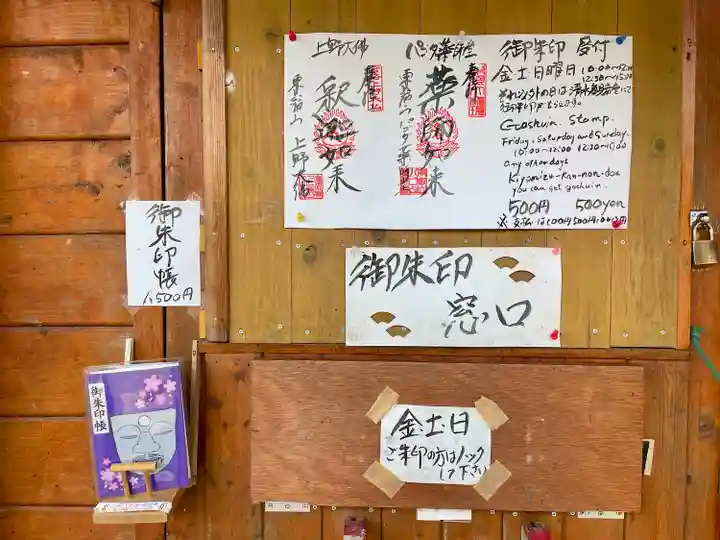 御朱印 受付
金土日曜日 10:00〜12:00
12:30〜15:00
それ以外の日は清水観音堂にて
Goshuin Stamp.
Friday, Saturday and Sunday.
10:00〜12:00 12:30〜15:00
any other days
Kiyomizu-Kan-non-dou
you can get goshuin.
500円 500yen
※支払いは100円500円1000円
パゴダ薬師堂
奉拝
薬師如来
東叡山パゴダ薬師堂
上野大佛
釈迦如来
東叡山 上野大佛
御朱印帳
1,500円
御朱印
窓口
御朱印帳
金土日
ご朱印の方はノック
して下さい